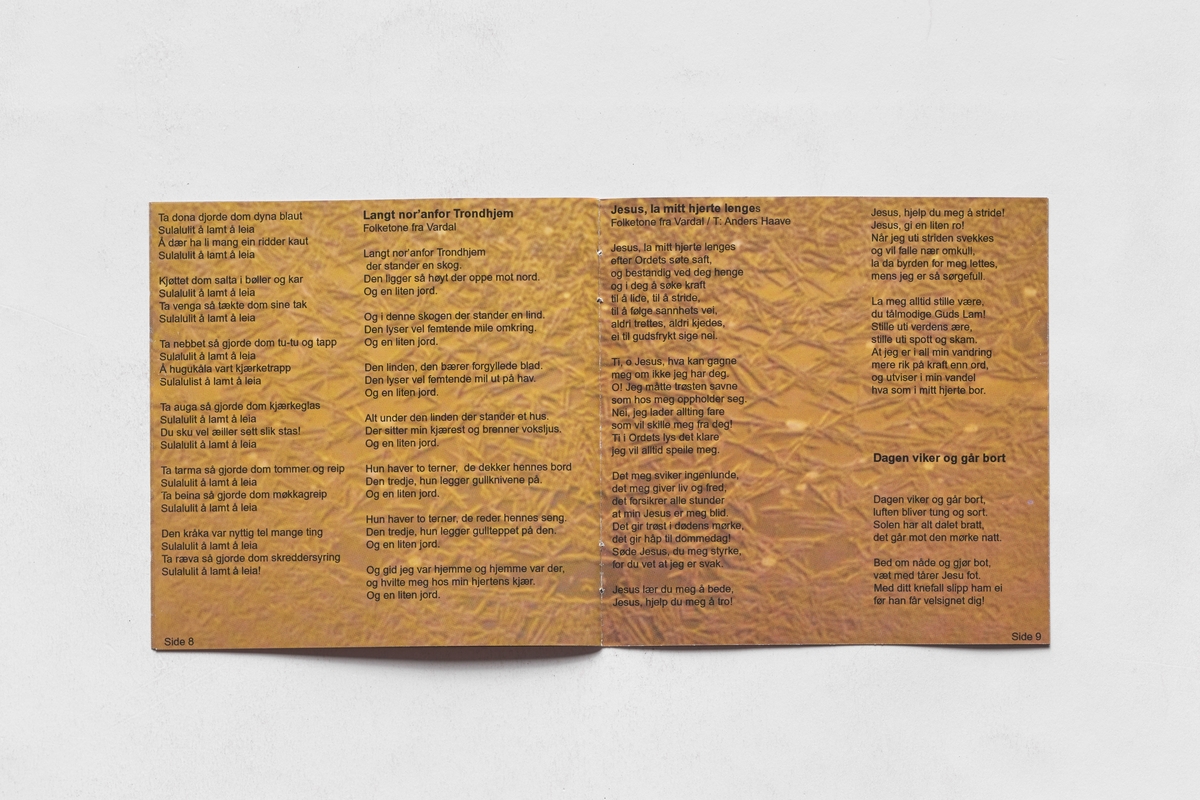 Ta dona djorde dom dyna blaut
Sulalulit å lamt å leia
Å dær ha li mang ein ridder kaut
Sulalulit å lamt å leia
Kjøttet dom salta i bøller og kar
Sulalulit å lamt å leia
Ta venga så tækte dom sine tak
Sulalulit å lamt å leia
Ta nebbet så gjorde dom tu-tu og tapp
Sulalulit å lamt å leia
Å hugukåla vart kjærketrapp
Sulalulist å lamt å leia
Ta auga så gjorde dom kjærkeglas
Sulalulit å lamt å leia
Du sku vel æiller sett slik stas!
Sulalulit å lamt å leia
Ta tarma så gjorde dom tommer og reip
Sulalulit å lamt å leia
Ta beina så gjorde dom møkkagreip
Sulalulit å lamt å leia
Den kråka var nyttig tel mange ting
Sulalulit å lamt å leia
Ta ræva så gjorde dom skreddersyring
Sulalulit å lamt å leia!
Side 8
Langt nor'anfor Trondhjem
Folketone fra Vardal
Langt nor'anfor Trondhjem
der stander en skog.
Den ligger så høyt der oppe mot nord.
Og en liten jord.
Og i denne skogen der stander en lind.
Den lyser vel femtende mile omkring.
Og en liten jord.
Den linden, den bærer forgyllede blad.
Den lyser vel femtende mil ut på hav.
Og en liten jord.
Alt under den linden der stander et hus.
Der sitter min kjærest og brenner voksljus.
Og en liten jord.
Hun haver to terner, de dekker hennes bord
Den tredje, hun legger gullknivene på.
Og en liten jord.
Hun haver to terner, de reder hennes seng.
Den tredje, hun legger gullteppet på den.
Og en liten jord.
Og gid jeg var hjemme og hjemme var der,
og hvilte meg hos min hjertens kjær.
Og en liten jord.
Jesus, la mitt hjerte lenges
Folketone fra Vardal / T: Anders Haave
Jesus, la mitt hjerte lenges
efter Ordets søte saft,
og bestandig ved deg henge
og i deg å søke kraft
til å lide, til å stride,
til å følge sannhets vei,
aldri trettes, aldri kjedes,
ei til gudsfrykt sige nei.
Ti, o Jesus, hva kan gagne
meg om ikke jeg har deg.
O! Jeg måtte trøsten savne
som hos meg oppholder seg.
Nei, jeg lader allting fare
som vil skille meg fra deg!
Ti i Ordets lys det klare
jeg vil alltid speile meg.
Det meg sviker ingenlunde,
det meg giver liv og fred,
det forsikrer alle stunder
at min Jesus er meg blid.
Det gir trøst i dødens mørke,
det gir håp til dommedag!
Søde Jesus, du meg styrke,
for du vet at jeg er svak.
Jesus lær du meg å bede,
Jesus, hjelp du meg å tro!
Jesus, hjelp du meg å stride!
Jesus, gi en liten ro!
Når jeg uti striden svekkes
og vil falle nær omkull,
la da byrden for meg lettes,
mens jeg er så sørgefull.
La meg alltid stille være,
du tålmodige Guds Lam!
Stille uti verdens ære,
stille uti spott og skam.
At jeg er i all min vandring
mere rik på kraft enn ord,
og utviser i min vandel
hva som i mitt hjerte bor.
Dagen viker og går bort
Dagen viker og går bort,
luften bliver tung og sort.
Solen har alt dalet bratt,
det går mot den mørke natt.
Bed om nåde og gjør bot,
væt med tårer Jesu fot.
Med ditt knefall slipp ham ei
før han får velsignet dig!
Side 9